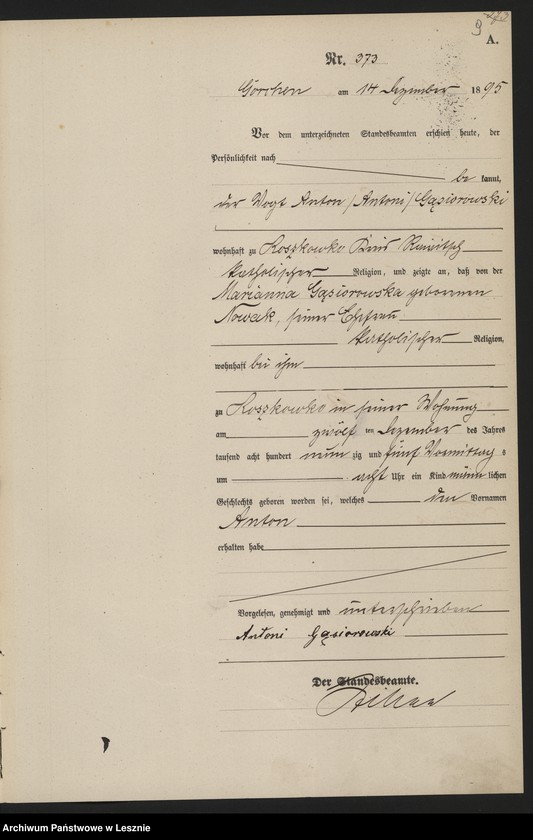 9
A.
Nr. 373
Görchen am 14 Dezember 1895
Vor dem unterzeichneten Standesbeamten erschien heute, der
Persönlichkeit nach
be kannt,
der Vogt Anton /Antoni/ Gąsiorowski
wohnhaft zu Koszkowko Kreis Rawitsch
katholischer Religion, und zeigte an, daß von der
Marianna Gąsiorowska geborenen
Nowak, seiner Ehefrau
katholischer Religion,
wohnhaft bei ihm
zu Koszkowko in seiner Wohnung
am zwölf ten Dezember des Jahres
tausend acht hundert neun zig und fünf Vormittag s
um acht Uhr ein Kind männ lichen
Geschlechts geboren worden sei, welches den Vornamen
Anton
erhalten habe
Vorgelesen, genehmigt und unterschrieben
Antoni Gąsiorowski
Der Standesbeamte.
Archiwum Państwowe w Lesznie